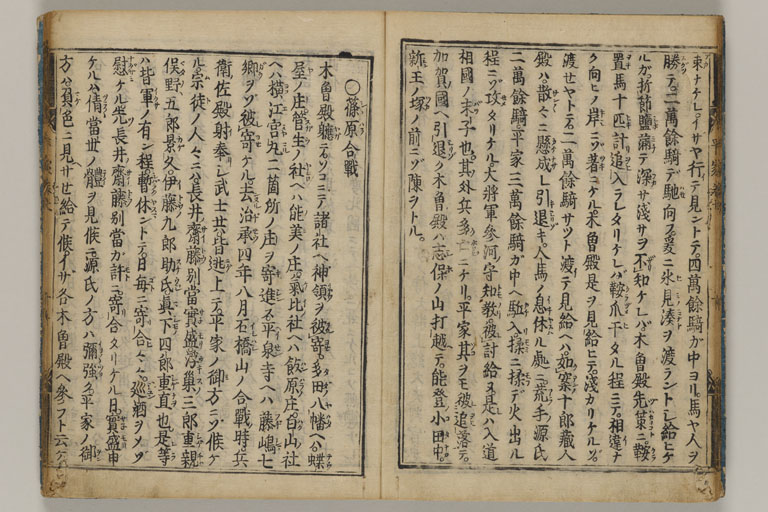 東ナケレ。イザヤ行テ見ントテ。四萬餘騎ガ中ヨリ。馬ヤ人ヲ
勝テ。二萬餘騎デ馳向フ。爰ニ氷見湊ヲ渡ラントシ給ヒケ
ルガ。折節鹽滿テ深サ淺サヲ不知ケレバ。木曽殿先策ニ鞍
置馬十匹計追入ラレタリケレバ。鞍爪干タル程ニテ。相違ナ
ク向ヒノ岸ニゾ著ニケル。木曽殿是ヲ見給ヒテ。淺カリケルゾ。
渡セヤトテ。二萬餘騎サツト渡テ見給ヘバ。如案十郎藏人
殿ハ散々ニ懸成レ引退キ。人馬ノ息休ル處ニ。荒手ノ源氏
二萬餘騎。平家三萬餘騎ガ中ヘ駈入。揉ニ揉デ火出ル
程ニゾ攻タリケル。大將軍參河守知教。被討給ヌ。是ハ入道
相國ノ末子也。其外兵多亡ニケリ。平家其ヲモ被追落テ。
加賀國ヘ引退ク。木曽殿ハ志保ノ山打越テ。能登小田中。
新王ノ塚ノ前ニゾ陳ヲトル。
○篠原合戰
木曽殿軈テソコニテ諸社ヘ神領ヲ被寄。多田八幡ヘハ蝶
屋ノ庄。菅生ノ社ヘハ能美ノ庄。氣比社ヘハ飯原庄。白山社
ヘハ橫江宮丸二箇所ノ庄ヲ寄進ス。平泉寺ヘハ藤嶋七
鄉ヲゾ被寄ケル。去治承四年八月石橋山ノ合戰時。兵
衛佐殿射奉シ武士共。皆逃上テ。平家ノ御方ニゾ候ケ
ル。宗徒ノ人々ニハ長井齋藤別當實盛。浮巢三郎重親
俣野五郎景久。伊藤九郎助氏。眞下四郎重直也。是等
ハ皆軍ノ有ン程暫休ントテ。日每ニ寄合々々。巡酒ヲゾシ
慰ケル。先長井齋藤別當ガ許ニ寄合タリケル日。實盛申
ケルハ。倩當世ノ體ヲ見候ニ。源氏ノ方ハ彌強ク。平家ノ御
方ハ負色ニ見サセ給テ候。イザ各木曽殿ヘ參フト云ケ